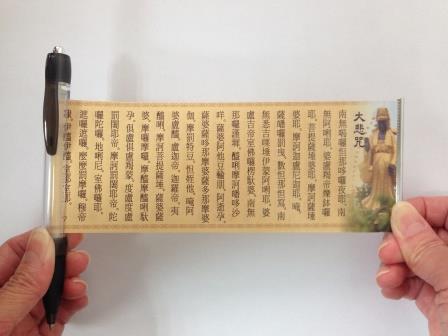 大悲咒
南無喝囉怛那哆囉夜耶。南
無阿唎耶。婆盧羯帝爍缽囉
耶。菩提薩埵婆耶。摩訶薩埵
婆耶。摩訶迦盧尼迦耶。唵。
薩皤囉罰曳。數怛那怛寫。南
無悉吉嘌埵伊蒙阿唎耶。婆
盧吉帝室佛囉楞馱婆。南無
那囉謹墀。醯唎摩訶皤哆沙
咩。薩婆阿他豆輸朋。阿逝孕。
薩婆薩哆那摩婆薩多那摩婆
伽。摩罰特豆。怛姪他。唵阿
婆盧醯。盧迦帝。迦羅帝。夷
醯唎。摩訶菩提薩埵。薩婆薩
婆。摩囉摩囉。摩醯摩醯唎馱
孕。俱盧俱盧羯蒙。度盧度盧
罰闍耶帝。摩訶罰闍耶帝。陀
囉陀囉。地唎尼。室佛囉耶。
遮囉遮囉。麼麼罰摩囉。穆帝
伊醯伊醯。室那室那。